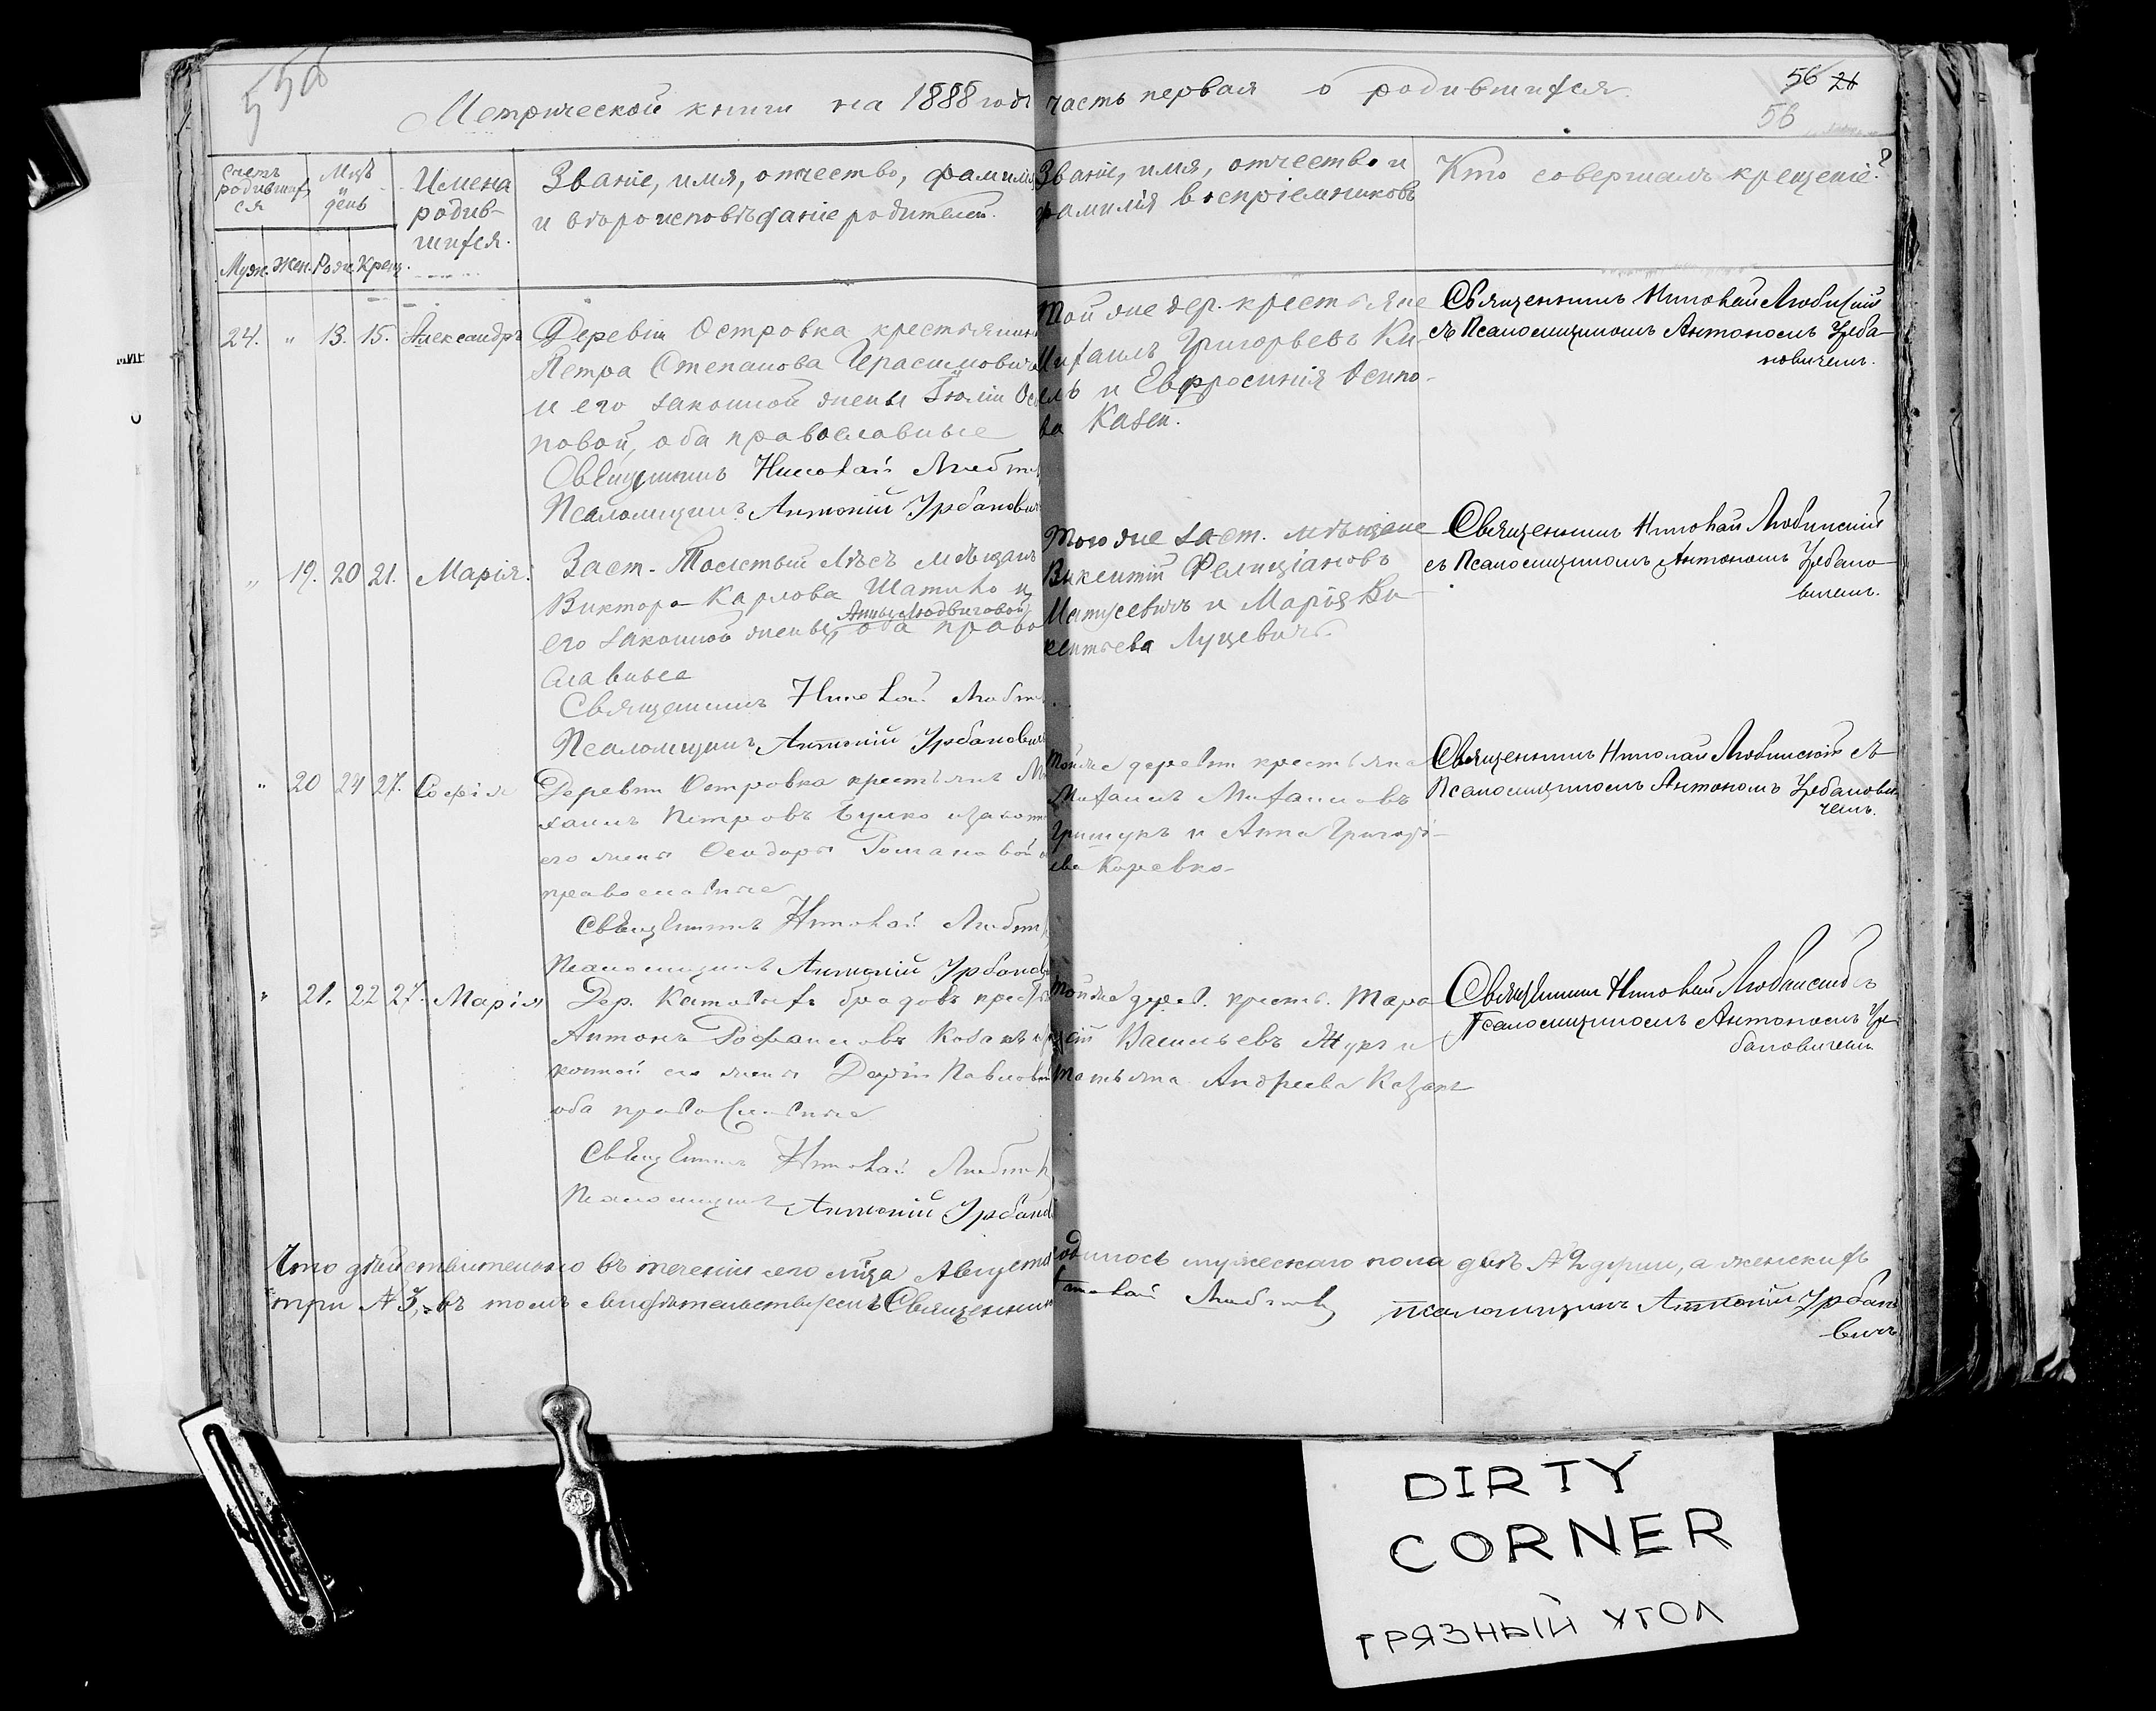 558
Метрической книги на 1888 годъ часть первая о родившихся.
56 21
56
счетъ родившихся
Мцъ и день
Имена родившихся.
Званіе, имя, отчество, фамилія
и вѣроисповѣданіе родителей.
Званіе, имя, отчество и
фамилія воспріемниковъ
Кто совершалъ крещеніе?
Муж. Жен. Рожд. Крещ.
24. " 13. 15. Александръ
Деревни Островка крестьянинъ
Петра Степанова Герасимович
и его законной жены Юліи Оси
повой, оба православные
Священникъ Николай
Псаломщикъ Антоній Урбанович
Той же дер. крестьяне
Михаилъ Григорьевъ Ки-
и Евфросинія Осипо-
ва Казей.
Священникъ Николай Любинскій
съ Псаломщикомъ Антономъ Урба-
новичемъ.
" 19. 20 21. Марія.
Заст. Толстый Лѣсъ мѣщанъ
Виктора Карлова Шатило и
его законной жены Анны Людвиговой, оба право
славные
Священникъ Николай
Псаломщикъ Антоній Урбанович
Того же заст. мѣщане
Викентій Фелиціановъ
Матусевичъ и Марія Ви-
кентьева Луцевичъ.
Священникъ Николай Любинскій
съ Псаломщикомъ Антономъ Урбано-
вичемъ.
" 20 24 27. Софія
Деревни Островка крестьянъ Ми
хаилъ Петровъ Булко законной
его жены Феодоры Романовой
православные
Священникъ Николай
Псаломщикъ Антоній Урбанов
Той же деревни крестьяне
Михаилъ Михаиловъ
Грищукъ и Анна Григорь-
ева Коревко-
Священникъ Николай Любинскій съ
Псаломщикомъ Антономъ Урбанови-
чемъ.
" 21. 22 27. Марія
Дер. бродовъ крест
Антонъ Козакъ и за
конной его жены Даріи Павловой
оба православные
Священникъ Николай
Псаломщикъ Антоній Урбанов
Той же дерев. крест. Тара
сій Васильевъ Жукъ и
Татьяна Андреева Казакъ
Священникъ Николай Любинскій съ
Псаломщикомъ Антономъ Ур-
бановичемъ
Что дѣйствительно въ теченіи сего мца Августа родилось мужескаго пола двѣ № 2 души, а женскихъ
три № 3, въ томъ свидѣтельствуемъ Священникъ Николай псаломщикъ Антоній Урбано
вичъ
DIRTY
CORNER
ГРЯЗНЫЙ УГОЛ